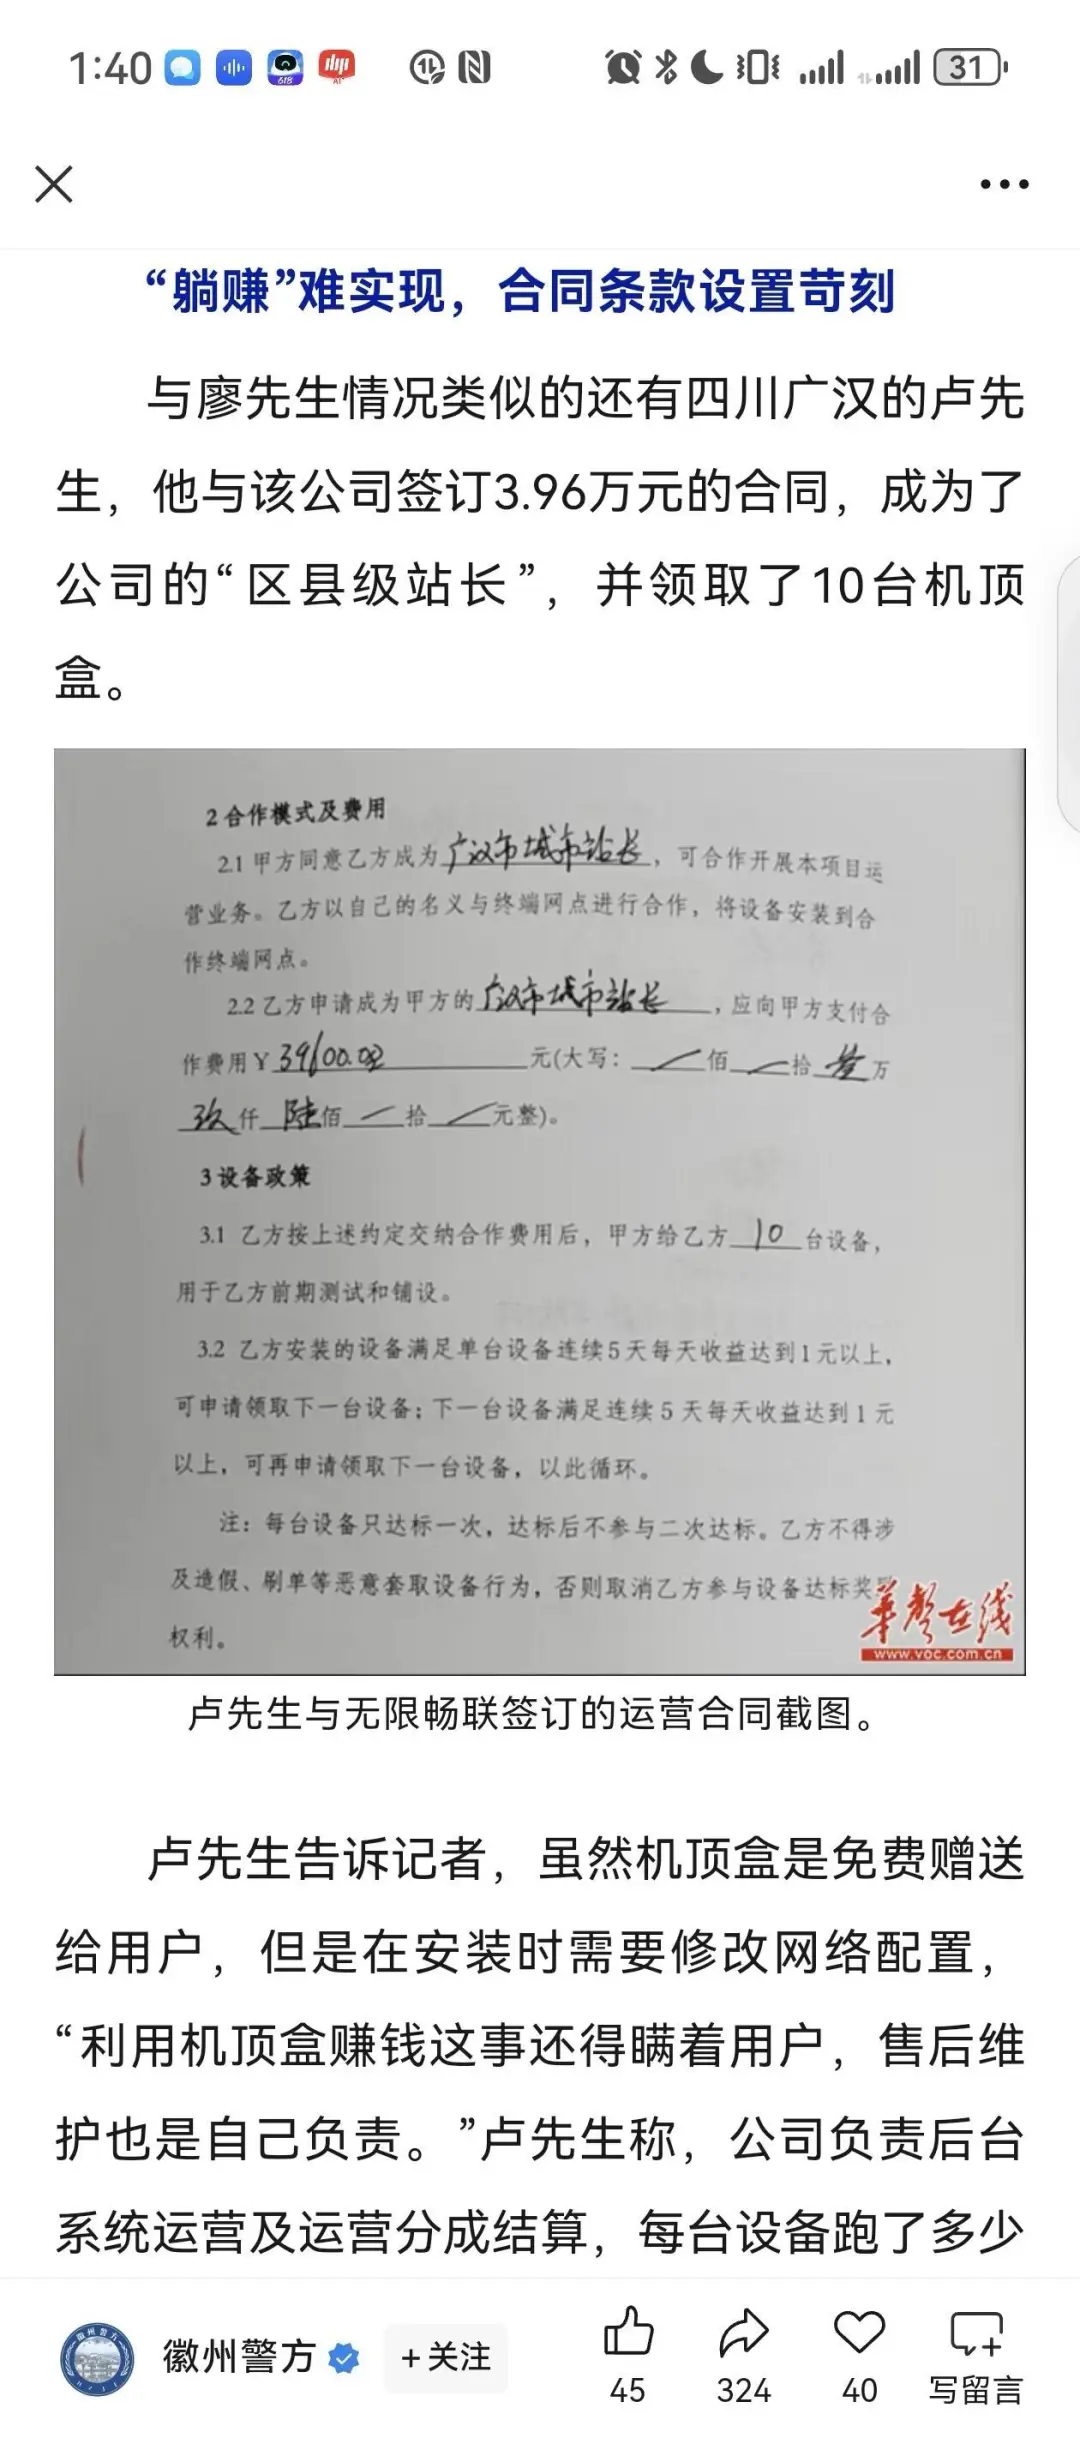 1:40
618
AI
31
“躺赚”难实现，合同条款设置苛刻
与廖先生情况类似的还有四川广汉的卢先
生，他与该公司签订3.96万元的合同，成为了
公司的“区县级站长”，并领取了10台机顶
盒。
2 合作模式及费用
2.1 甲方同意乙方成为广汉市城市站长，可合作开展本项目运
营业务。乙方以自己的名义与终端网点进行合作，将设备安装到合
作终端网点。
2.2 乙方申请成为甲方的广汉市城市站长，应向甲方支付合
作费用￥39600.00元(大写：佰拾万
玖仟陆佰拾元整)。
3 设备政策
3.1 乙方按上述约定交纳合作费用后，甲方给乙方10台设备，
用于乙方前期测试和铺设。
3.2 乙方安装的设备满足单台设备连续5天每天收益达到1元以上，
可申请领取下一台设备；下一台设备满足连续 5 天每天收益达到 1 元
以上，可再申请领取下一台设备，以此循环。
注：每台设备只达标一次，达标后不参与二次达标。乙方不得涉
及造假、刷单等恶意套取设备行为，否则取消乙方参与设备达标奖
权利。
华声在线
www.voc.com.cn
卢先生与无限畅联签订的运营合同截图。
卢先生告诉记者，虽然机顶盒是免费赠送
给用户，但是在安装时需要修改网络配置，
“利用机顶盒赚钱这事还得瞒着用户，售后维
护也是自己负责。”卢先生称，公司负责后台
系统运营及运营分成结算，每台设备跑了多少
徽州警方
+关注
45
324
40
写留言